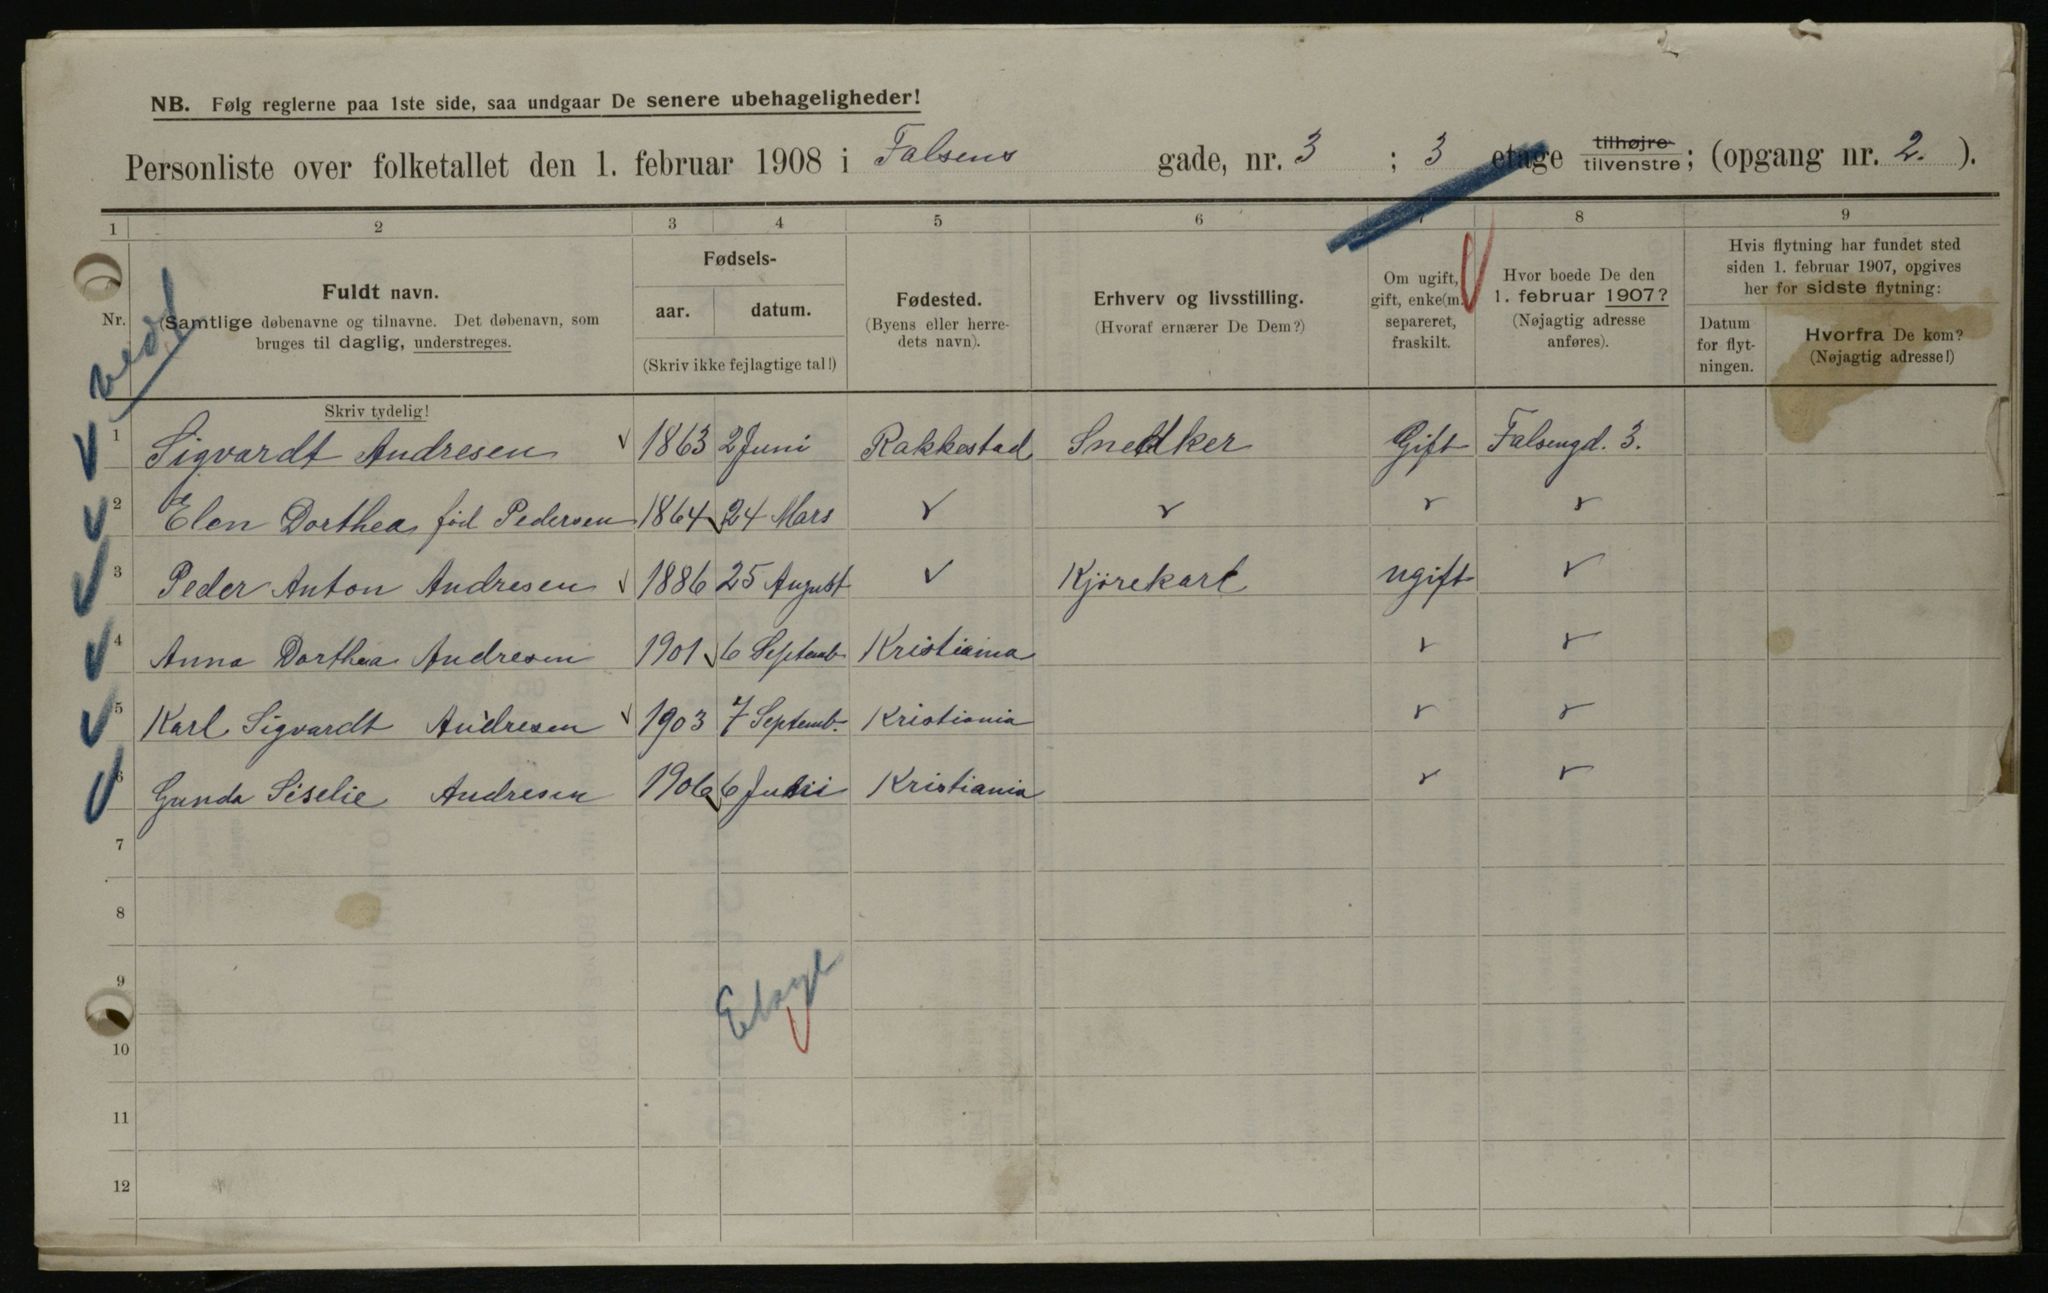 NB. Følg reglerne paa 1ste side, saa undgaar De senere ubehageligheder!
Personliste over folketallet den 1. februar 1908 i Falsens gade, nr. 3 ; 3 etage tilhøjre tilvenstre; (opgang nr. 2. ).
1 2 3 4 5 6 7 8 9
Nr.
Fuldt navn.
(Samtlige døbenavne og tilnavne. Det døbenavn, som
bruges til daglig, understreges.
Fødsels-
aar. datum.
(Skriv ikke fejlagtige tal!)
Fødested.
(Byens eller herre-
dets navn).
Erhverv og livsstilling.
(Hvoraf ernærer De Dem?)
Om ugift,
gift, enke(m.
separeret,
fraskilt.
Hvor boede De den
1. februar 1907?
(Nøjagtig adresse
anføres).
Hvis flytning har fundet sted
siden 1. februar 1907, opgives
her for sidste flytning:
Datum
for flyt-
ningen.
Hvorfra De kom?
(Nøjagtig adresse!)
Skriv tydelig!
1 Sigvardt Andresen √ 1863 2 Juni Rakkestad Snedker Gift Falsengd. 3.
2 Elen Dorthea fød Pedersen 1864 √ 24 Mars √ √ √ √
3 Peder Anton Andresen √ 1886 25 August √ Kjørekarl ugift √
4 Anna Dorthea Andresen 1901 √ 6 Septemb. Kristiania √ √
5 Karl Sigvardt Andresen √ 1903 7 Septemb. Kristiania √ √
6 Gunda Siselie Andresen 1906 √ 6 Juli Kristiania √ √
7
8
9
10
11
12